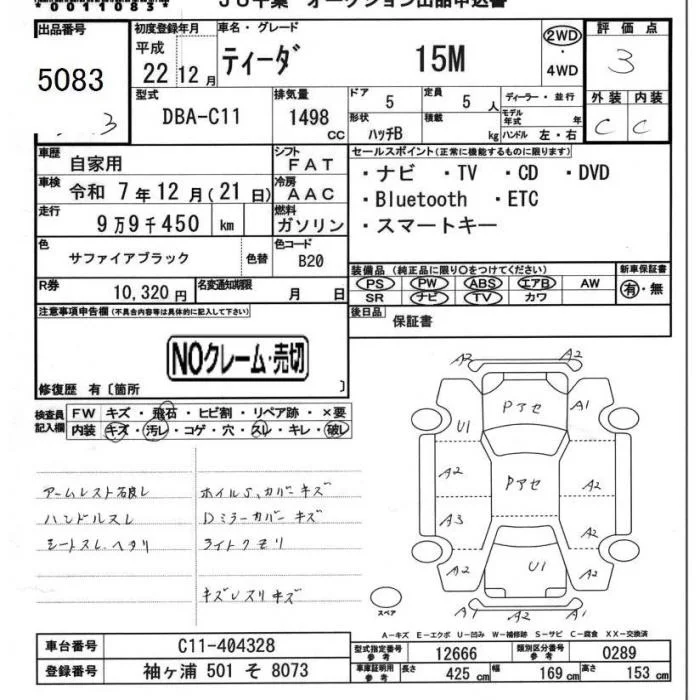 00110834
JU千葉 オークション出品申込書
出品番号
5083
3
初度登録年月
平成
22 12 月
車名・グレード
ティーダ 15M
2WD
・
4WD
評価点
3
外装 内装
C C
型式
DBA-C11
排気量
1498
CC
ドア
5
定員
5 人
ディーラー・並行
モデル年式 年
形状
ハッチB
積載
kg
ハンドル 左・右
車歴
自家用
シフト
FAT
車検
令和 7 年 12 月(21 日)
冷房
AAC
走行
9万9千450 km
燃料
ガソリン
色
サファイアブラック
色替
色コード
B20
R券
10,320 円
名変通知期限
月 日
セールスポイント(正常に機能するものに限ります)
・ナビ ・TV ・CD ・DVD
・Bluetooth ・ETC
・スマートキー
装備品(純正品に限り○をつけてください)
新車保証書
PS PW ABS エアB AW
有・無
SR ナビ TV カワ
後日品
保証書
注意事項申告欄(不具合内容等は具体的に記入して下さい)
NOクレーム・売切
修復歴 有〔箇所 〕
検査員記入欄
FW キズ・飛石・ヒビ割・リペア跡・×要
内装 キズ・汚レ・コゲ・穴・スレ・キレ・破レ
アームレスト破レ
ハンドルスレ
シートスレ、ヘタリ
ホイルS、カバーキズ
Dミラーカバーキズ
ライトクモリ
キズレスリキズ
A2 A2
Pアセ
A1
U1
A2
Pアセ
A2
A3
A2
A2
U1
A2
A1 A2 A1
スペア
A-キズ E-エクボ U-凹み W-補修跡 S-サビ C-腐食 XX-交換済
車台番号
C11-404328
登録番号
袖ヶ浦 501 そ 8073
型式指定番号
参考
12666
類別区分番号
参考
0289
車庫証明用
参考
長さ
425 cm
幅
169 cm
高さ
153 cm